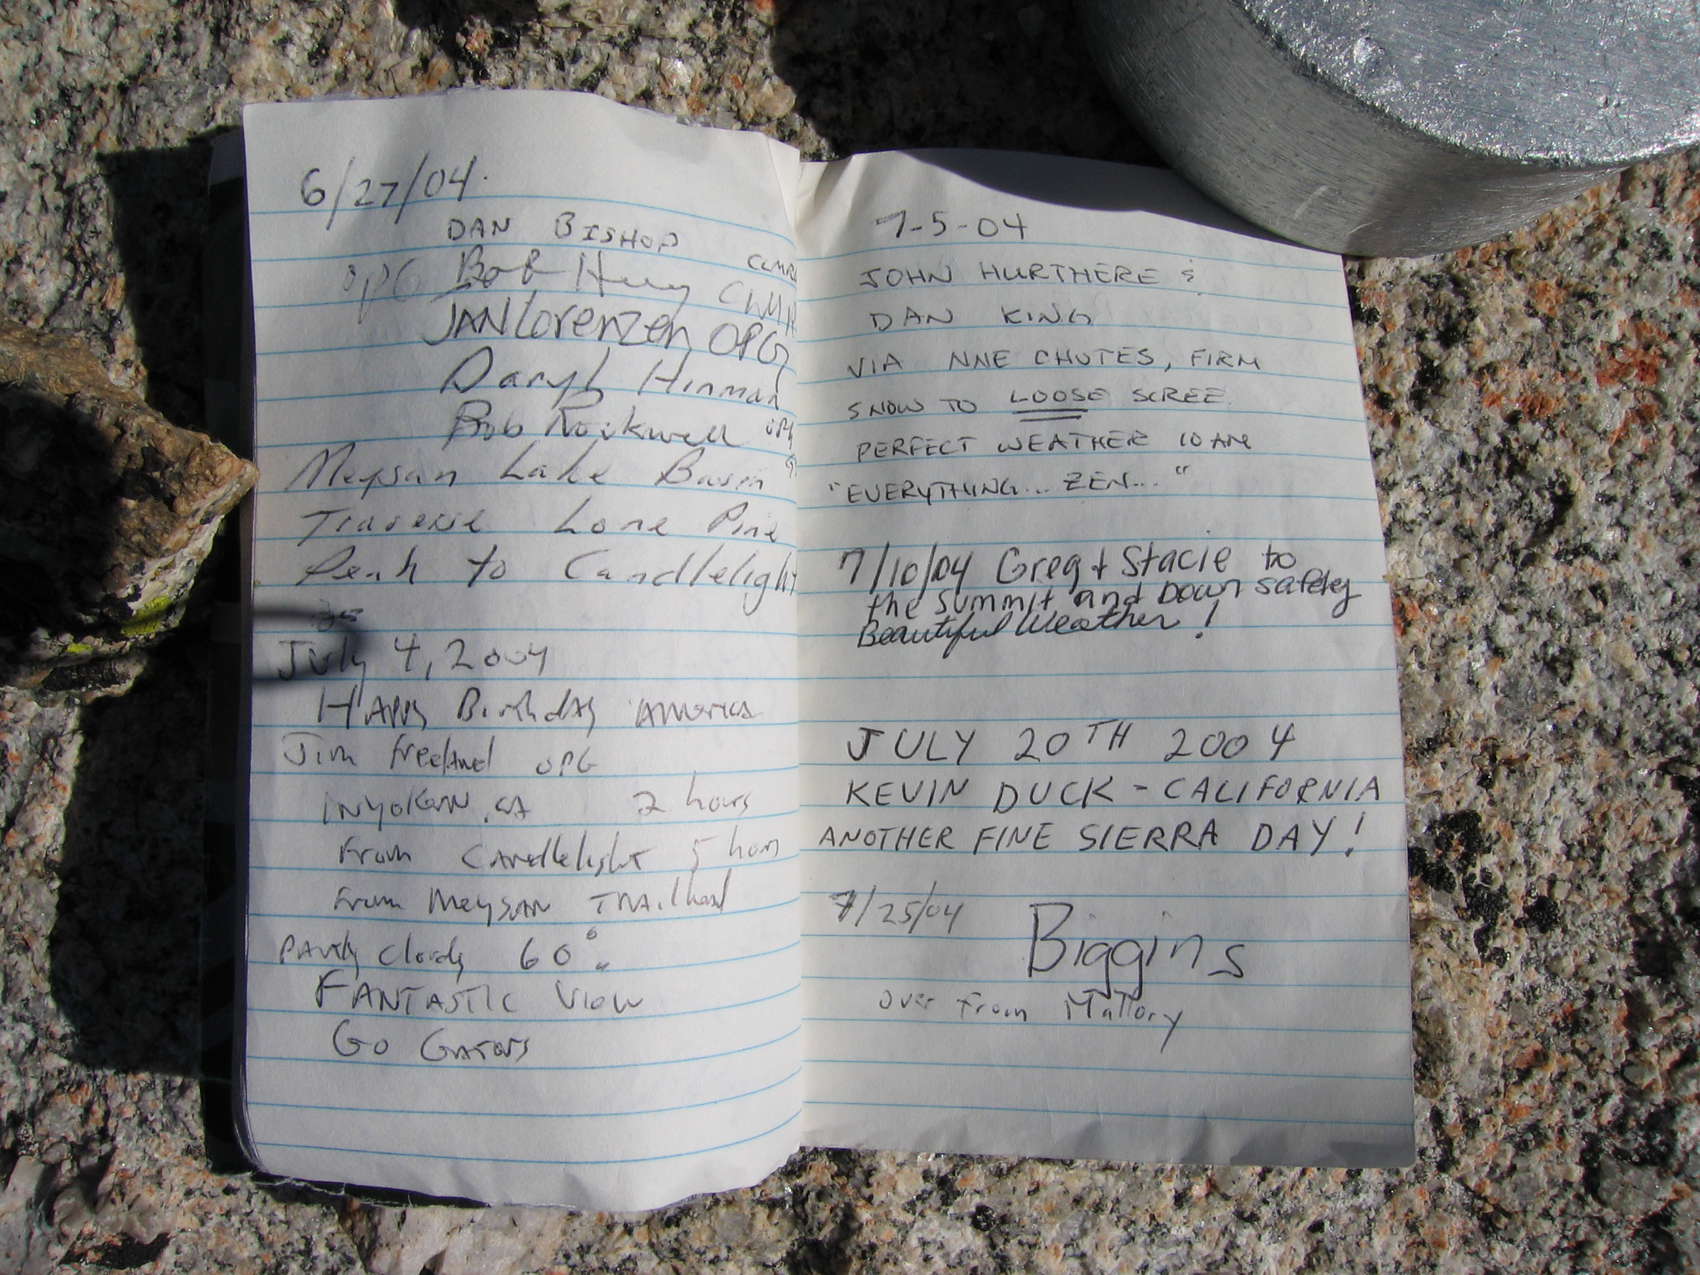 6/27/04.
DAN BISHOP
OPG Bob
JAN Lorenzen OPG
Daryl Hinman
Bob Rockwell OPG
Meysan Lake Basin
Traverse Lone Pine
Peak to Candlelight
July 4, 2004
HAPPy BirthdAy AmericA
Jim Freeland OPG
INyoKern, CA 2 hours
From CANdlelight 5 hours
From MeysAN TrAilhead
PArtly Cloudy 60°
FANTASTIC View
Go GATors
7-5-04
JOHN HURTHERE &
DAN KING
VIA NNE CHUTES, FIRM
SNOW TO LOOSE SCREE.
PERFECT WEATHER 10 AM
"EVERYTHING... ZEN..."
7/10/04 Greg + Stacie to
the summit and Down safely
Beautiful Weather!
JULY 20TH 2004
KEVIN DUCK - CALIFORNIA
ANOTHER FINE SIERRA DAY!
7/25/04 Biggins
over from Mallory